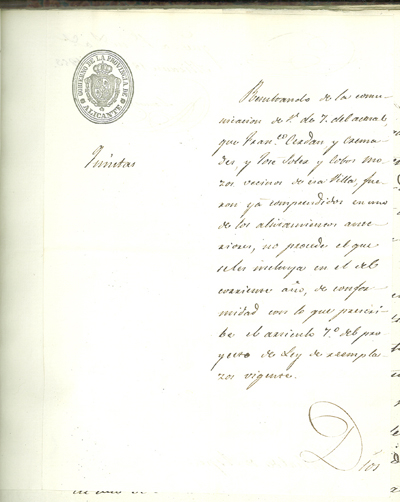 GOBIERNO DE LA PROVINCIA DE
ALICANTE
Quintas
Resultando de la comu-
nicacion de V. de 7. del actual,
que Fran.co Cerdan y Crema-
des, y José Soler y Cobos mo-
zos vecinos de esa Villa, fue-
ron ya comprendidos en uno
de los alistamientos ante-
riores, no procede el que
se les incluya en el del
corriente año, de confor-
midad con lo que prescri-
be el articulo 7.º del pro-
yecto de Ley de reempla-
zos vigente.
Dios